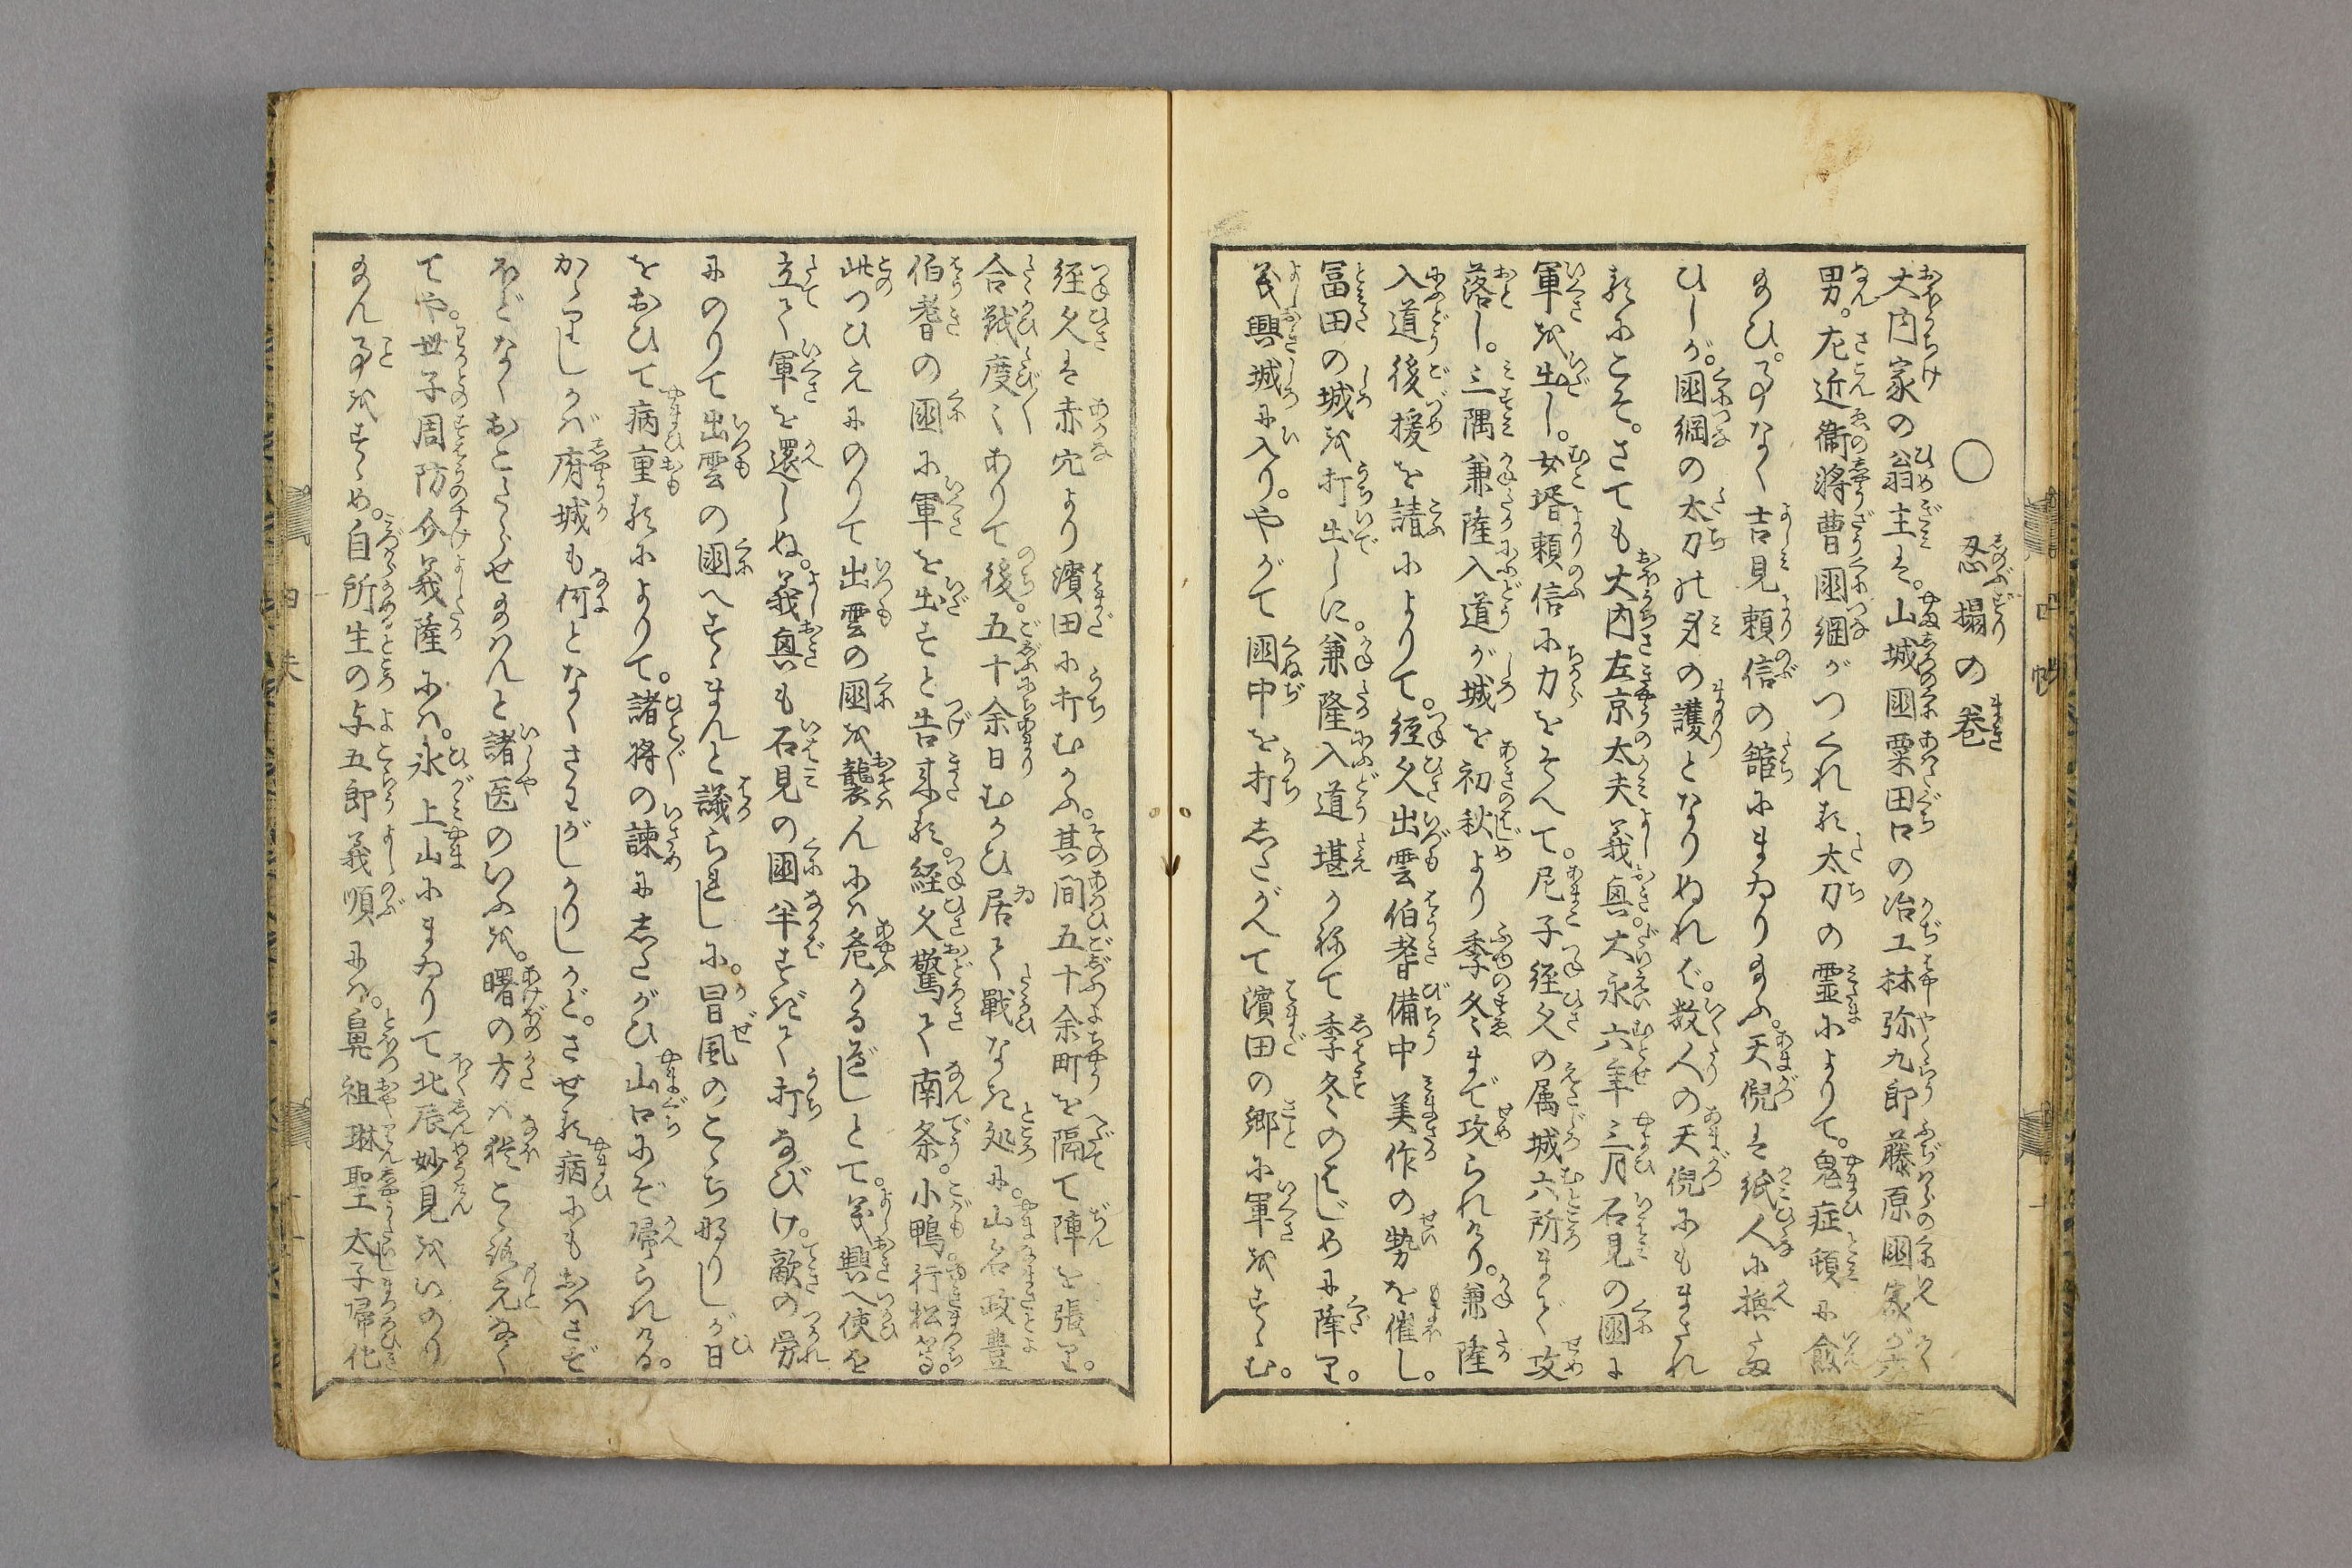 ○忍搨の巻
大内家の翁主は。山城國粟田口の冶工林弥九郎藤原國家が六
男。左近衛將曹國綱がつくれる太刀の霊によりて。鬼症頓に愈
給ひ。事なく吉見頼信の舘にまゐり給ふ。天倪は紙人に換たま
ひしが。國綱の太刀の身の護となりぬれば。数人の天倪にもまされ
るにこそ。さても大内左京太夫義真。大永六年三月石見の國に
軍を出し。女壻頼信に力をそへて。尼子経久の属城六所まで攻
落し。三隅兼隆入道が城を初秋より季冬まで攻られけり。兼隆
入道後援を請によりて。経久出雲伯耆備中美作の勢を催し。
冨田の城を打出しに。兼隆入道堪かねて季冬のはじめに降り。
義興城に入り。やがて國中を打したがへて濱田の郷に軍をすゝむ。
経久は赤穴より濱田に打むかふ。其間五十余町を隔て陣を張り。
合戦度〻ありて後。五十余日むかひ居て戰なき処に。山名政豊
伯耆の國に軍を出すと告来る。経久驚て南条。小鴨。行松等。
此つひえにのりて出雲の國を襲んには危かるべしとて。義興へ使を
立て軍を還しぬ。義真も石見の國半すぎて打なびけ。敵の労
にのりて出雲の國へすゝまんと議られしに。冒風のこゝち那りしが日
をおひて病重るによりて。諸將の諫にしたがひ山口にぞ帰られける。
かゝりしかば府城も何となくさわがしかりしかど。させる病にもおはさず
ほどなくおこたらせ給はんと諸医のいふを。曙の方は猶こゝろ元なく
てや。世子周防介義隆には。氷上山にまゐりて北辰妙見をいのり
給ん事をすゝめ。自所生の与五郎義順には。鼻祖琳聖太子帰化